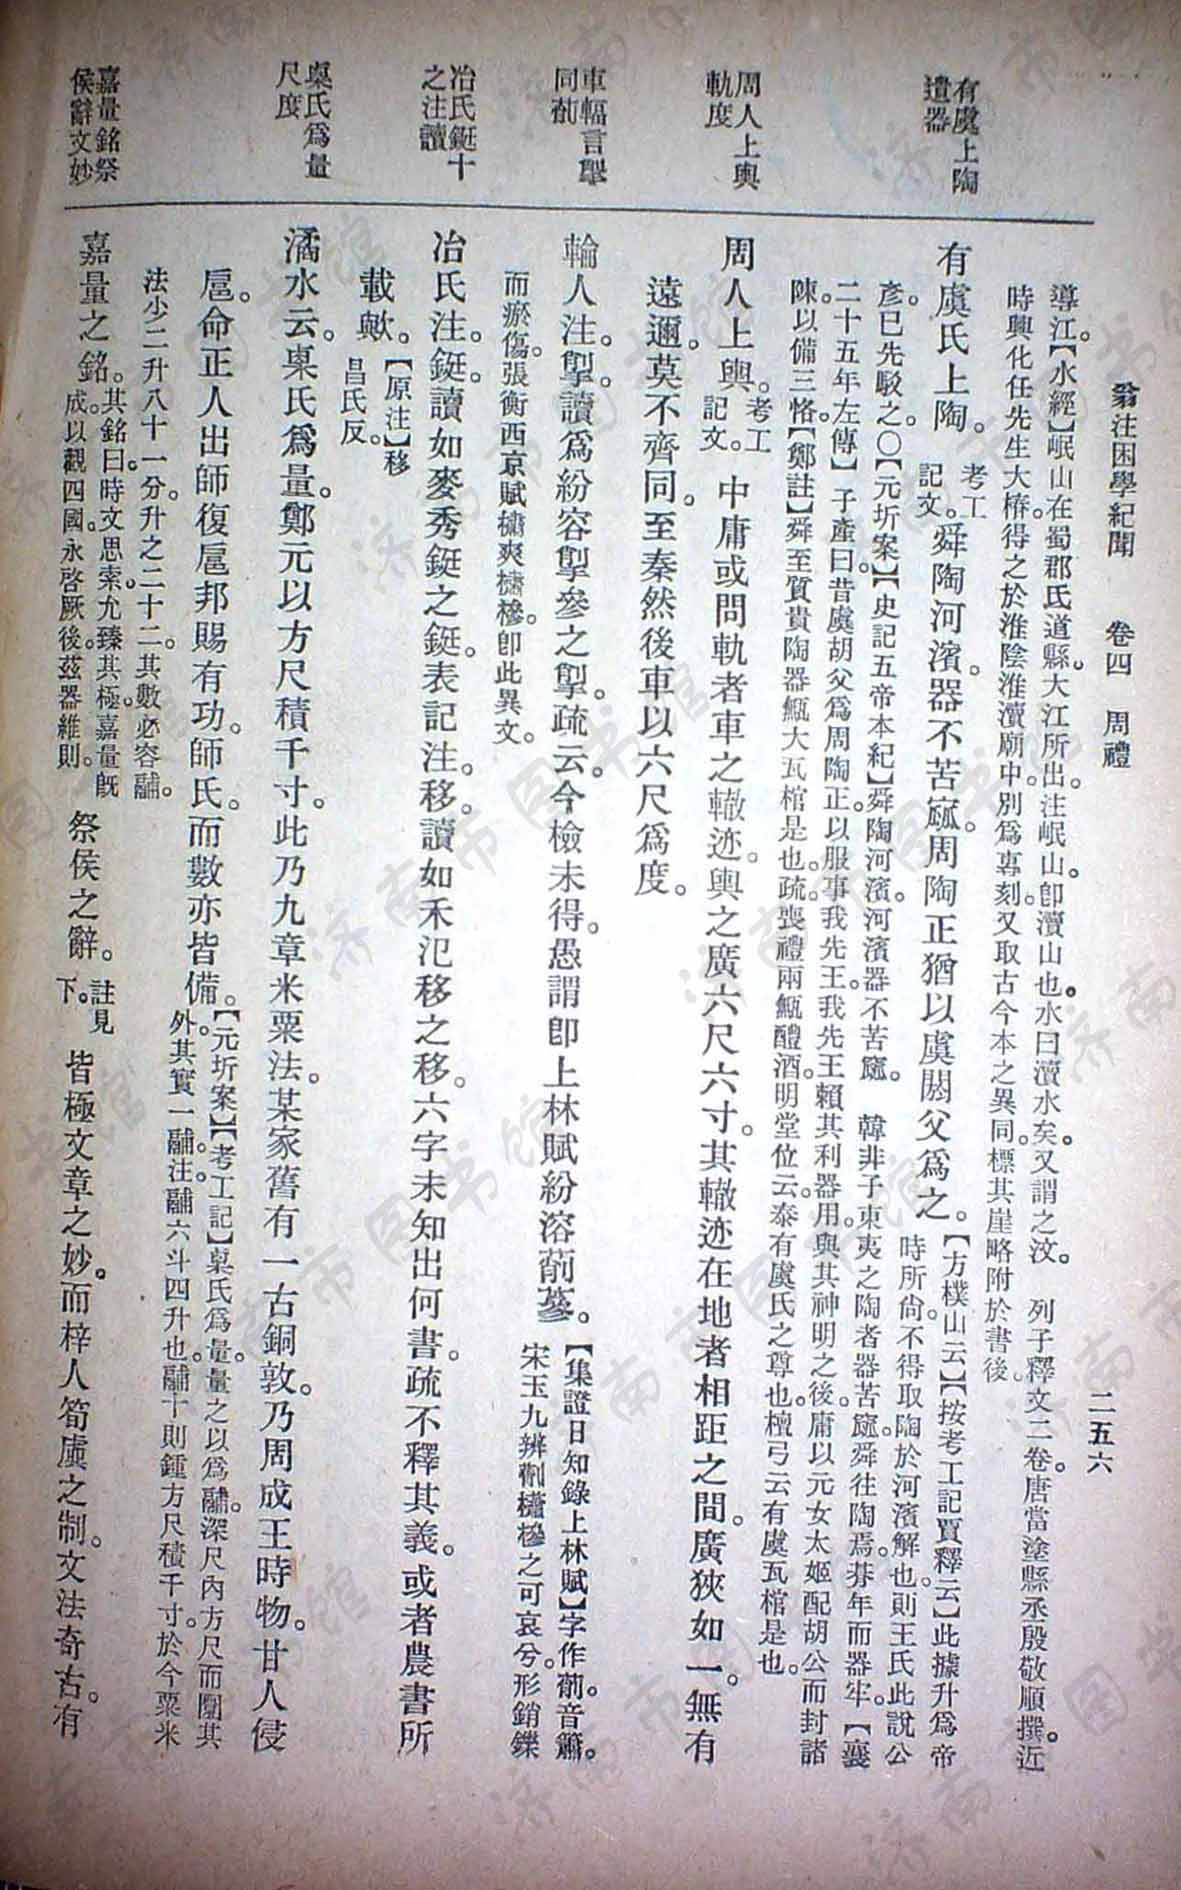 翁注困學紀聞　卷四　周禮　二五六
導江。【水經】岷山在蜀郡氐道縣。大江所出。注岷山。卽瀆山也。水曰瀆水矣。又謂之汶。　列子釋文二卷。唐當塗縣丞殷敬順撰。近
時興化任先生大椿。得之於淮陰淮瀆廟中。別爲專刻。又取古今本之異同。標其崖略附於書後。
有虞上陶
遺器
有虞氏上陶。考工
記文。舜陶河濱。器不苦窳。周陶正猶以虞閼父爲之。【方樸山云】【按考工記賈釋云】此據升爲帝
時所尙。不得取陶於河濱解也。則王氏此說公
彥已先駁之。〇【元圻案】【史記五帝本紀】舜陶河濱。河濱器不苦窳。　韓非子東夷之陶者器苦窳。舜往陶焉。朞年而器牢。【襄
二十五年左傳】子產曰。昔虞胡父爲周陶正。以服事我先王。我先王賴其利器用。與其神明之後。庸以元女太姬配胡公而封諸
陳。以備三恪。【鄭註】舜至質貴陶器。甒大瓦棺是也。疏。喪禮兩甒醴酒。明堂位云。泰有虞氏之尊也。檀弓云有虞瓦棺是也。
周人上輿
軌度
周人上輿。考工
記文。中庸或問軌者車之轍迹。輿之廣六尺六寸。其轍迹在地者相距之間。廣狹如一。無有
遠邇。莫不齊同。至秦然後車以六尺爲度。
車輻言掣
同萷
輪人注。掣。讀爲紛容掣參之掣。疏云。今檢未得。愚謂卽上林賦紛溶萷蔘。【集證日知錄上林賦】字作萷。音簫。
宋玉九辨。萷櫹槮之可哀兮。形銷鑠
而瘀傷。張衡西京賦。櫹爽櫹槮。卽此異文。
冶氏鋌十
之注讀
冶氏注。鋌。讀如麥秀鋌之鋌。表記注。移。讀如禾氾移之移。六字未知出何書。疏不釋其義。或者農書所
載歟。【原注】移
昌氏反。
㮚氏爲量
尺度
潏水云。㮚氏爲量。鄭元以方尺積千寸。此乃九章米粟法。某家舊有一古銅敦。乃周成王時物。甘人侵
扈。命正人出師復扈邦賜有功。師氏。而數亦皆備。【元圻案】【考工記】㮚氏爲量。量之以爲鬴。深尺內方尺而圜其
外。其實一鬴。注。鬴六斗四升也。鬴十則鍾。方尺積千寸。於今粟米
法少二升八十一分。升之二十二。其數必容鬴。
嘉量銘祭
侯辭文妙
嘉量之銘。其銘曰。時文思索。允臻其極。嘉量旣
成。以觀四國。永啓厥後。茲器維則。祭侯之辭。註見
下。皆極文章之妙。而梓人筍虡之制。文法奇古。有